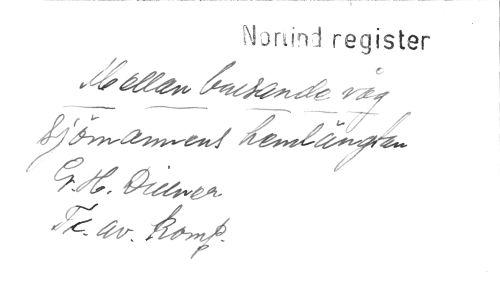 Norlind register
Mellan brusande våg
Sjömannens hemlängtan
G. H. Dillner
Tx. av. Komp.